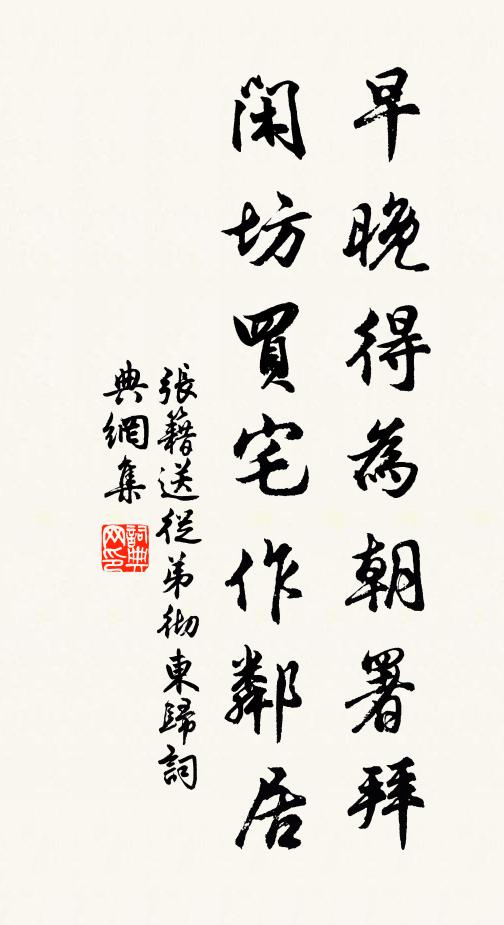 早晚得為朝署拜
閑坊買宅作鄰居
張籍送從弟彻東歸詞
典網集
詞典
网印